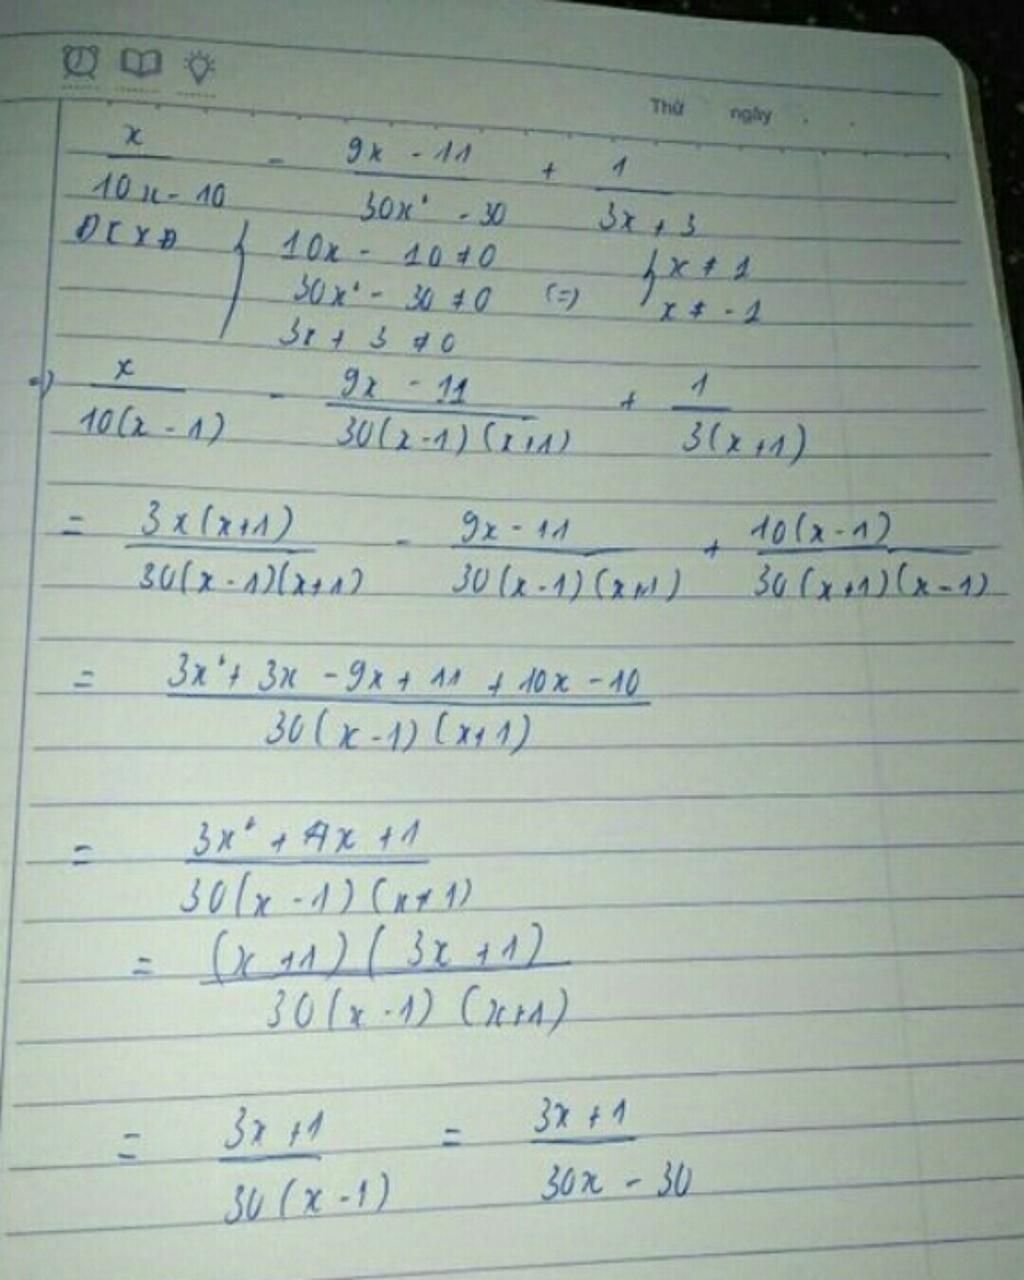 Thứ ngày
x/(10x - 10) - (9x - 11)/(30x² - 30) + 1/(3x + 3)
ĐKXĐ { 10x - 10 ≠ 0
30x² - 30 ≠ 0 (=) { x ≠ 1
3x + 3 ≠ 0 x ≠ -1
=> x/(10(x - 1)) - (9x - 11)/(30(x-1)(x+1)) + 1/(3(x+1))
= 3x(x+1)/(30(x-1)(x+1)) - (9x - 11)/(30(x-1)(x+1)) + 10(x-1)/(30(x+1)(x-1))
= (3x² + 3x - 9x + 11 + 10x - 10)/(30(x-1)(x+1))
= (3x² + 4x + 1)/(30(x-1)(x+1))
= (x+1)(3x+1)/(30(x-1)(x+1))
= (3x+1)/(30(x-1)) = (3x+1)/(30x - 30)